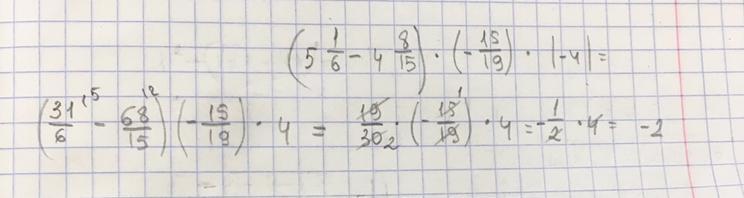 (5 1/6 - 4 8/15) · (-15/19) · |-4| =
(31/6 ^5 - 68/15 ^2) (-15/19) · 4 = 19/30 2 · (-15/19 1) · 4 = -1/2 · 4 = -2